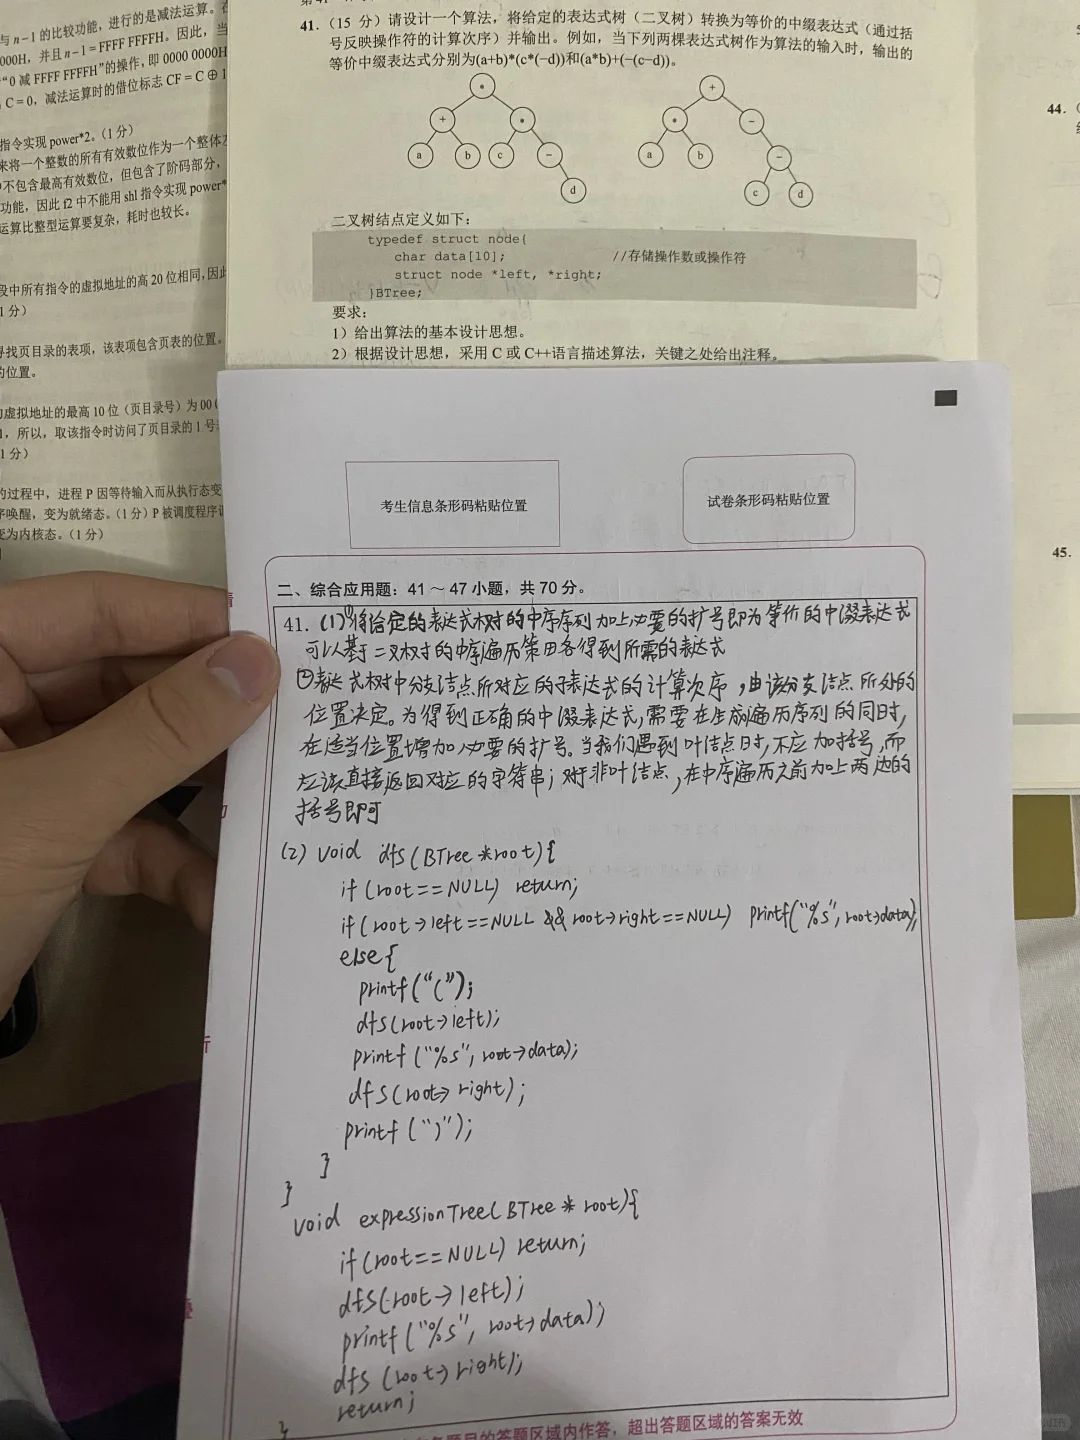 与 n−1 的比较功能，进行的是减法运算。在
000H，并且 n−1 = FFFF FFFFH。因此，当
“0 减 FFFF FFFFH”的操作，即 0000 0000H
C = 0，减法运算时的借位标志 CF = C ⊕ 1
指令实现 power*2。（1 分）
来将一个整数的所有有效数位作为一个整体左
中不包含最高有效数位，但包含了阶码部分，
功能，因此 f2 中不能用 shl 指令实现 power*
运算比整型运算要复杂，耗时也较长。
段中所有指令的虚拟地址的高 20 位相同，因此
1 分）
寻找页目录的表项，该表项包含页表的位置。
的位置。
虚拟地址的最高 10 位（页目录号）为 00
，所以，取该指令时访问了页目录的 1 号
1 分）
的过程中，进程 P 因等待输入而从执行态变
序唤醒，变为就绪态。（1 分）P 被调度程序
变为内核态。（1 分）
41.（15 分）请设计一个算法，将给定的表达式树（二叉树）转换为等价的中缀表达式（通过括
号反映操作符的计算次序）并输出。例如，当下列两棵表达式树作为算法的输入时，输出的
等价中缀表达式分别为(a+b)*(c*(−d))和(a*b)+(−(c−d))。
* + * a b c − d
+ * − a b − c d
二叉树结点定义如下：
typedef struct node{
char data[10]; //存储操作数或操作符
struct node *left, *right;
}BTree;
要求：
1）给出算法的基本设计思想。
2）根据设计思想，采用 C 或 C++语言描述算法，关键之处给出注释。
44.
45.
考生信息条形码粘贴位置
试卷条形码粘贴位置
二、综合应用题：41～47 小题，共 70 分。
41. (1)①将给定的表达式树的中序序列加上必要的扩号即为等价的中缀表达式
可以基于二叉树的中序遍历策略得到所需的表达式
②表达式树中分支结点所对应的子表达式的计算次序，由该分支结点所处的
位置决定。为得到正确的中缀表达式，需要在生成遍历序列的同时，
在适当位置增加必要的扩号。当我们遇到叶结点时，不应加括号，而
应该直接返回对应的字符串；对于非叶结点，在中序遍历之前加上两边的
括号即可
(2) void dfs(BTree *root){
if(root==NULL) return;
if(root→left==NULL && root→right==NULL) printf("%s",root→data);
else{
printf("(");
dfs(root→left);
printf("%s", root→data);
dfs(root→right);
printf(")");
}
}
void expressionTree(BTree * root){
if(root==NULL) return;
dfs(root→left);
printf("%s", root→data);
dfs(root→right);
return;
}
题目的答题区域内作答，超出答题区域的答案无效